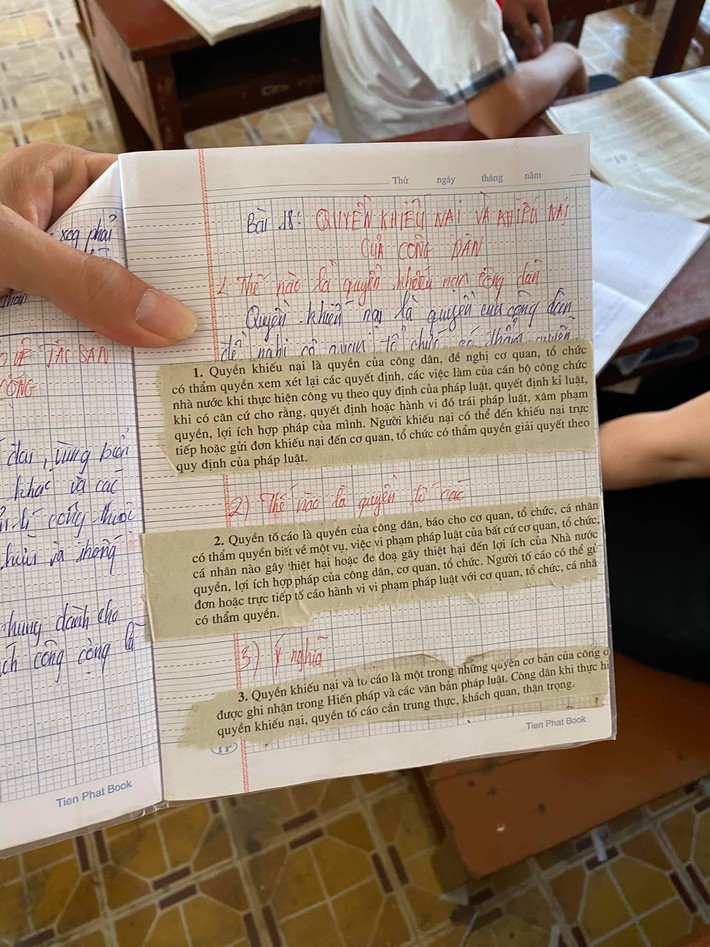 Thứ ngày tháng năm
Bài 18: QUYỀN KHIẾU NẠI VÀ KHIẾU NẠI
CỦA CÔNG DÂN
1. Thế nào là quyền khiếu nại công dân
Quyền khiếu nại là quyền của công dân
đề nghị cơ quan, tổ chức có thẩm quyền
1. Quyền khiếu nại là quyền của công dân, đề nghị cơ quan, tổ chức
có thẩm quyền xem xét lại các quyết định, các việc làm của cán bộ công chức
nhà nước khi thực hiện công vụ theo quy định của pháp luật, quyết định kỉ luật,
khi có căn cứ cho rằng, quyết định hoặc hành vi đó trái pháp luật, xâm phạm
quyền, lợi ích hợp pháp của mình. Người khiếu nại có thể đến khiếu nại trực
tiếp hoặc gửi đơn khiếu nại đến cơ quan, tổ chức có thẩm quyền giải quyết theo
quy định của pháp luật.
2) Thế nào là quyền tố cáo
2. Quyền tố cáo là quyền của công dân, báo cho cơ quan, tổ chức, cá nhân
có thẩm quyền biết về một vụ, việc vi phạm pháp luật của bất cứ cơ quan, tổ chức,
cá nhân nào gây thiệt hại hoặc đe doạ gây thiệt hại đến lợi ích của Nhà nước
quyền, lợi ích hợp pháp của công dân, cơ quan, tổ chức. Người tố cáo có thể gử
đơn hoặc trực tiếp tố cáo hành vi vi phạm pháp luật với cơ quan, tổ chức, cá nhâ
có thẩm quyền.
3) Ý nghĩa
3. Quyền khiếu nại và tố cáo là một trong những quyền cơ bản của công
được ghi nhận trong Hiến pháp và các văn bản pháp luật. Công dân khi thực hi
quyền khiếu nại, quyền tố cáo cần trung thực, khách quan, thận trọng.
Tien Phat Book
phải
TÀI SẢN
CỘNG
đai, vùng biển
khác và các
công thuộc
và thống
chung dành cho
ích công cộng là
Tien Phat Book